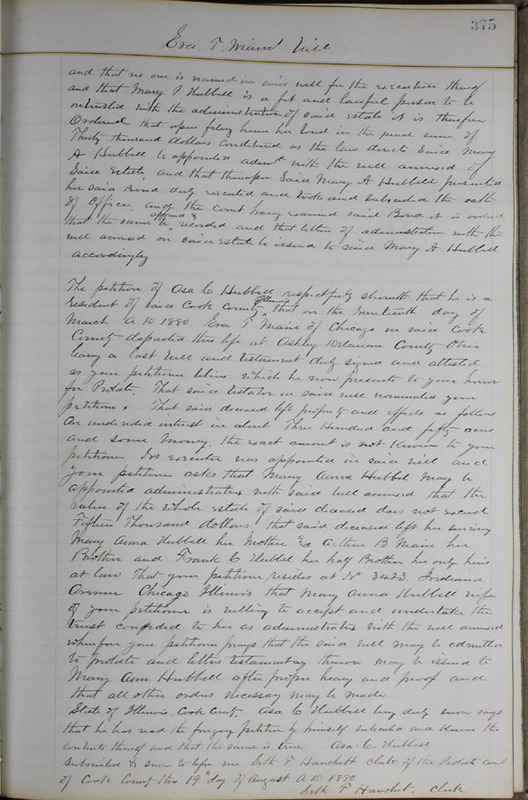 375
Eva. T. Maine Will
and that no one is named in said will for the execution thereof
and that Mary A Hubbell is a fit and lawful person to be
entrusted with the administration of said estate it is therefore
Ordered that upon filing herein her bond in the penal sum of
Thirty thousand dollars conditioned as the law directs said Mary
A Hubbell be appointed admx with the will annexed of
Said Estate, and that thereupon Said Mary A Hubbell presented
her said Bond duly executed and took and subscribed the oath
of Office, and the court having examined said Bond it is ordered
that the same be approved & recorded and that letters of administration with the
will annexed on said estate be issued to said Mary A Hubbell
accordingly
The petition of Asa C Hubbell respectfully sheweth that he is a
resident of said Cook County Illinois, that on the Nineteenth day of
March A D 1880 Eva T Maine of Chicago in said Cook
County departed this life at Ashley Delaware County Ohio
leaving a last will and testament duly signed and attested
as your petitioner believes which he now presents to your honor
for Probate. That said testator in said will nominates your
petitioner. That said deceased left property and effects as follows
An undivided interest in about Three Hundred and fifty acres
and some money, the exact amount is not known to your
petitioner No executor was appointed in said will and
your petitioner asks that Mary Anna Hubbel may be
appointed administratrix with said will annexed that the
value of the whole estate of said deceased does not exceed
Fifteen Thousand dollars that said deceased left her surviving
Mary Anna Hubbell her Mother Arthur B Maine her
Brother and Frank C Hubbel her half Brother her only heirs
at law That your petitioner resides at No 3422 Indiana
Avenue Chicago Illinois that Mary Anna Hubbell wife
of your petitioner is willing to accept and undertake the
trust confided to her as administratrix with the will annexed
wherefore your petitioner prays that the said will may be admitted
to probate and letters testamentary thereon may be issued to
Mary Ann Hubbell after proper hearing and proof and
that all other orders necessary may be made
State of Illinois. Cook County. Asa C Hubbell being duly sworn says
that he has read the foregoing petition by himself subscribed and knows the
contents thereof and that the same is true Asa. C. Hubbell
Subscribed & sworn to before me Seth F Hanchett Clerk of the Probate Court
of Cook County this 19th day of August A D 1880
Seth F Hanchet. Clerk